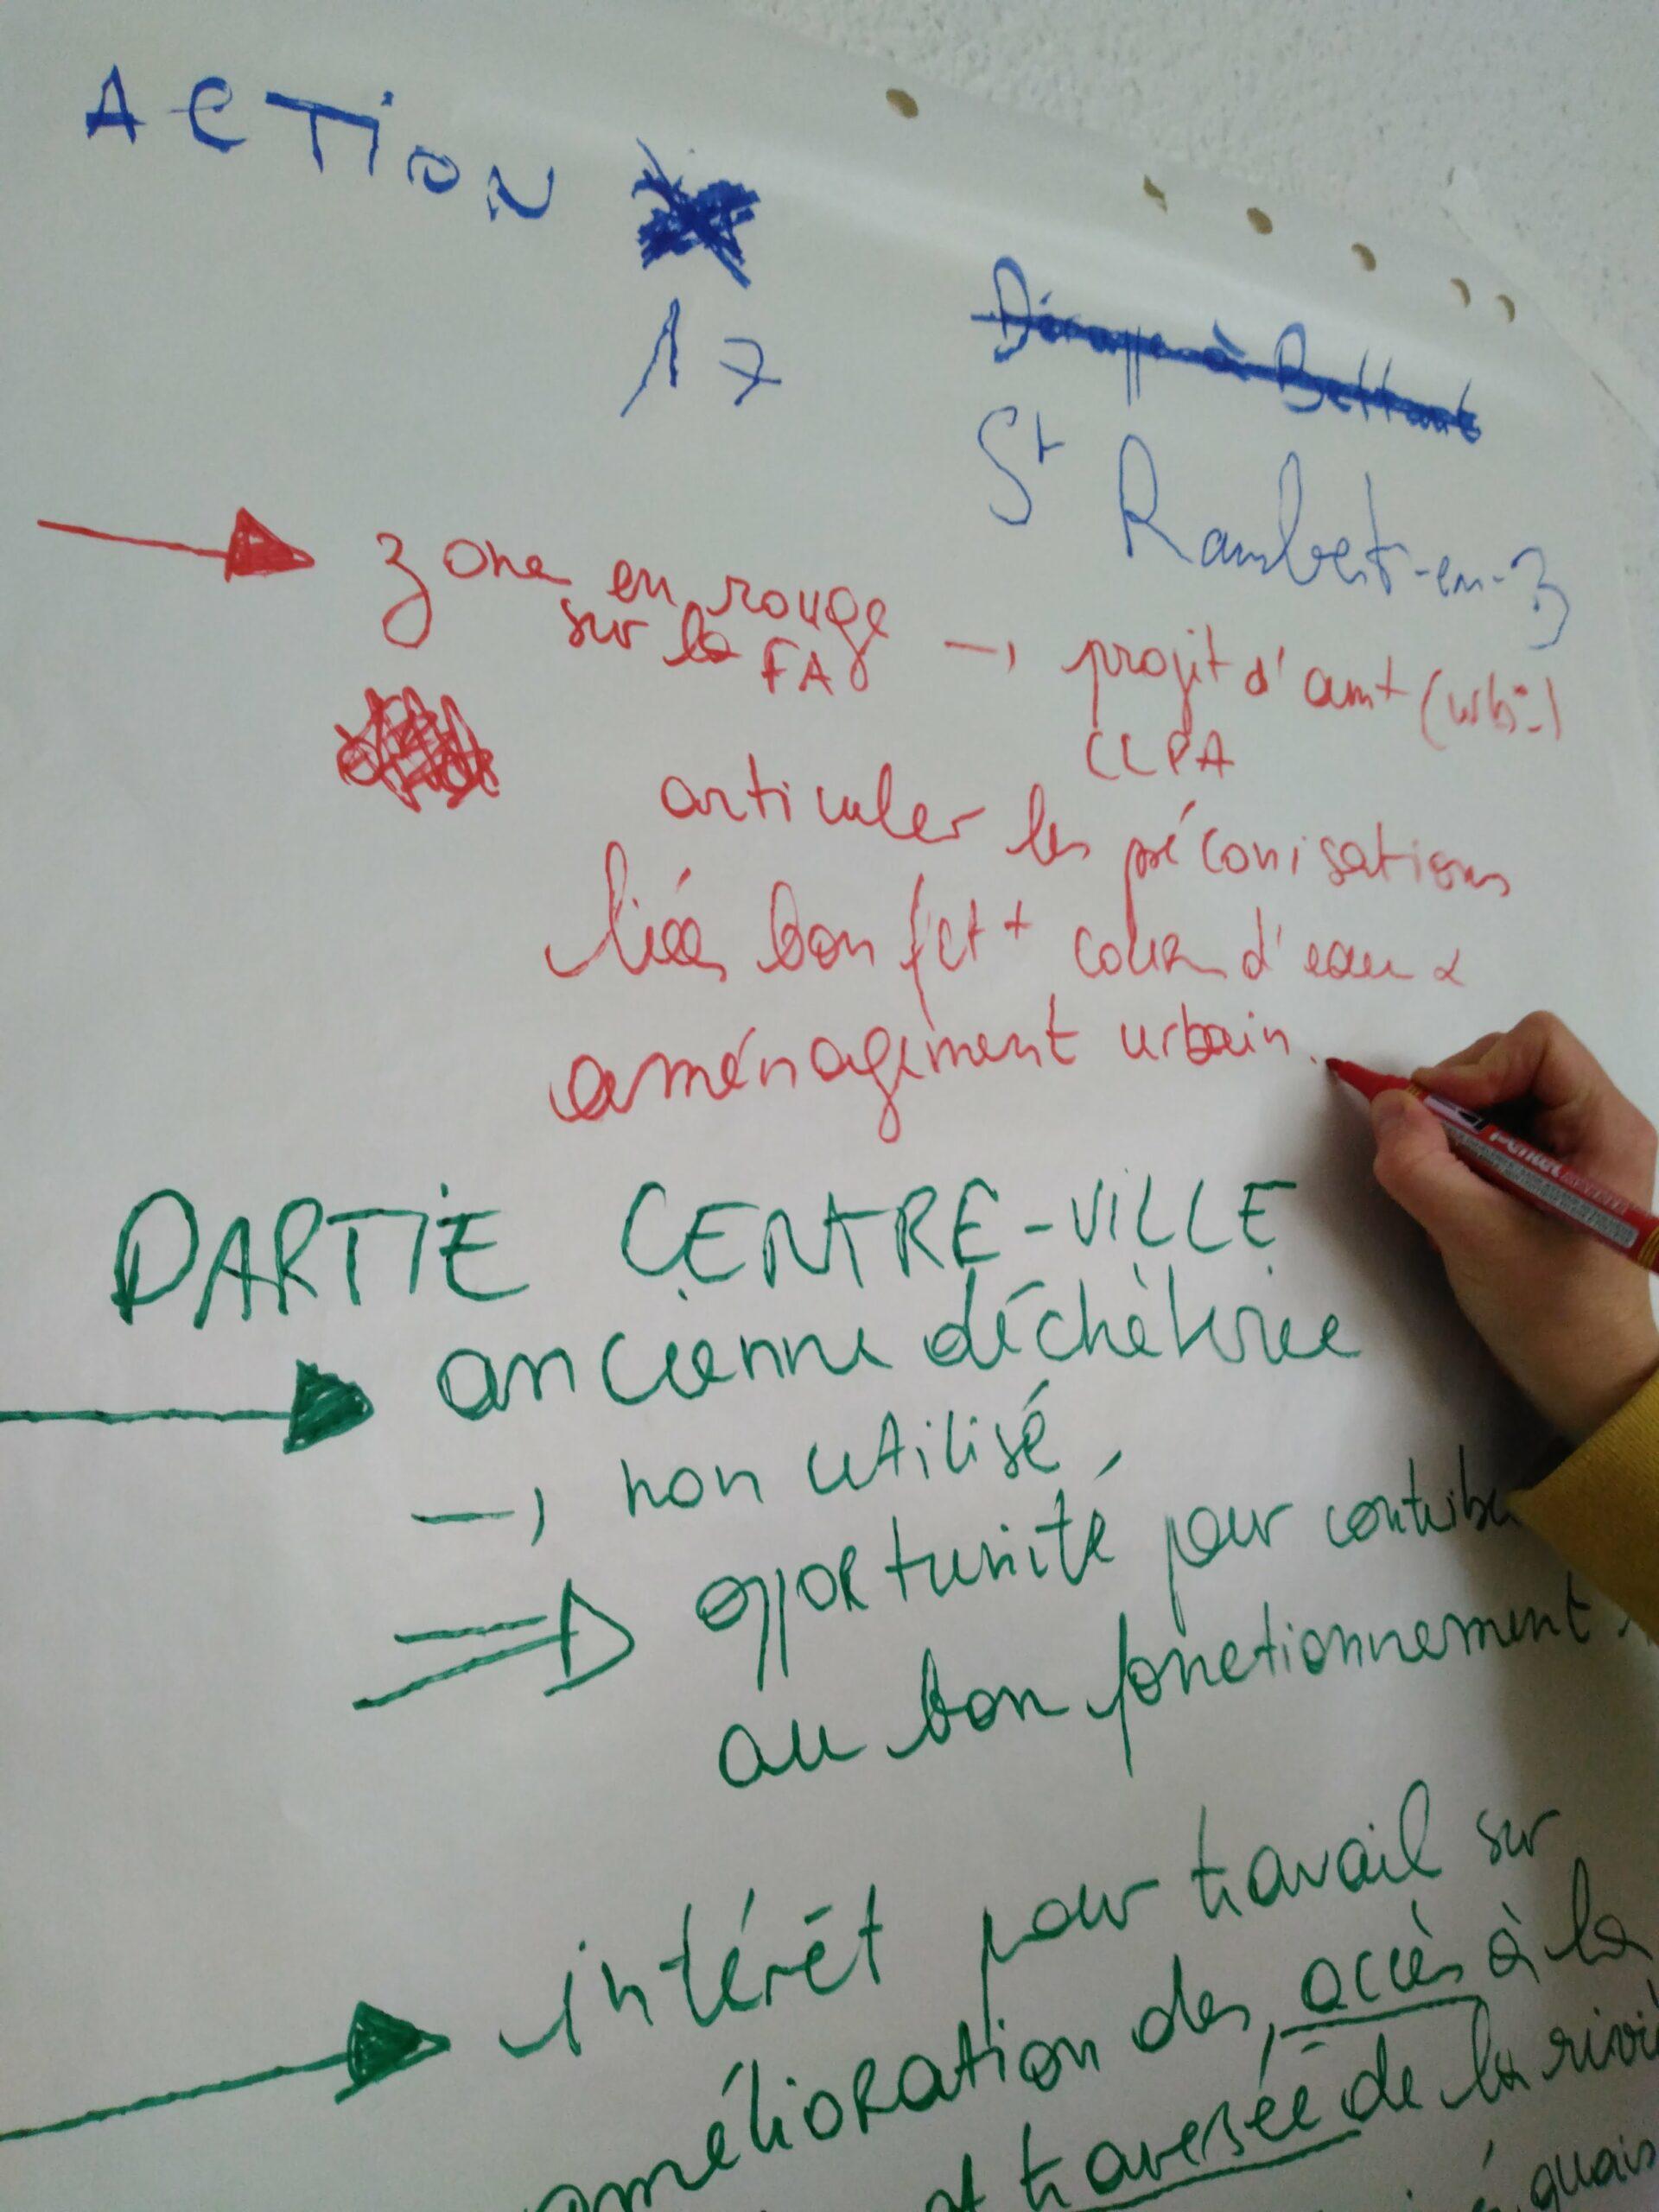 ACTION
17
St Rambert-en-B
zone en rouge
sur la FA → projet d'amt (urb=)
CCPA
articuler les préconisations
liées bon fct+ cours d'eau &
aménagement urbain.
PARTIE CENTRE-VILLE
ancienne déchèterie
→ non utilisé
⇒ opportunité pour contribu
au bon fonctionnement
intérêt pour travail sur
amélioration des accès à la
et traversée de la riviè
quais
pentel